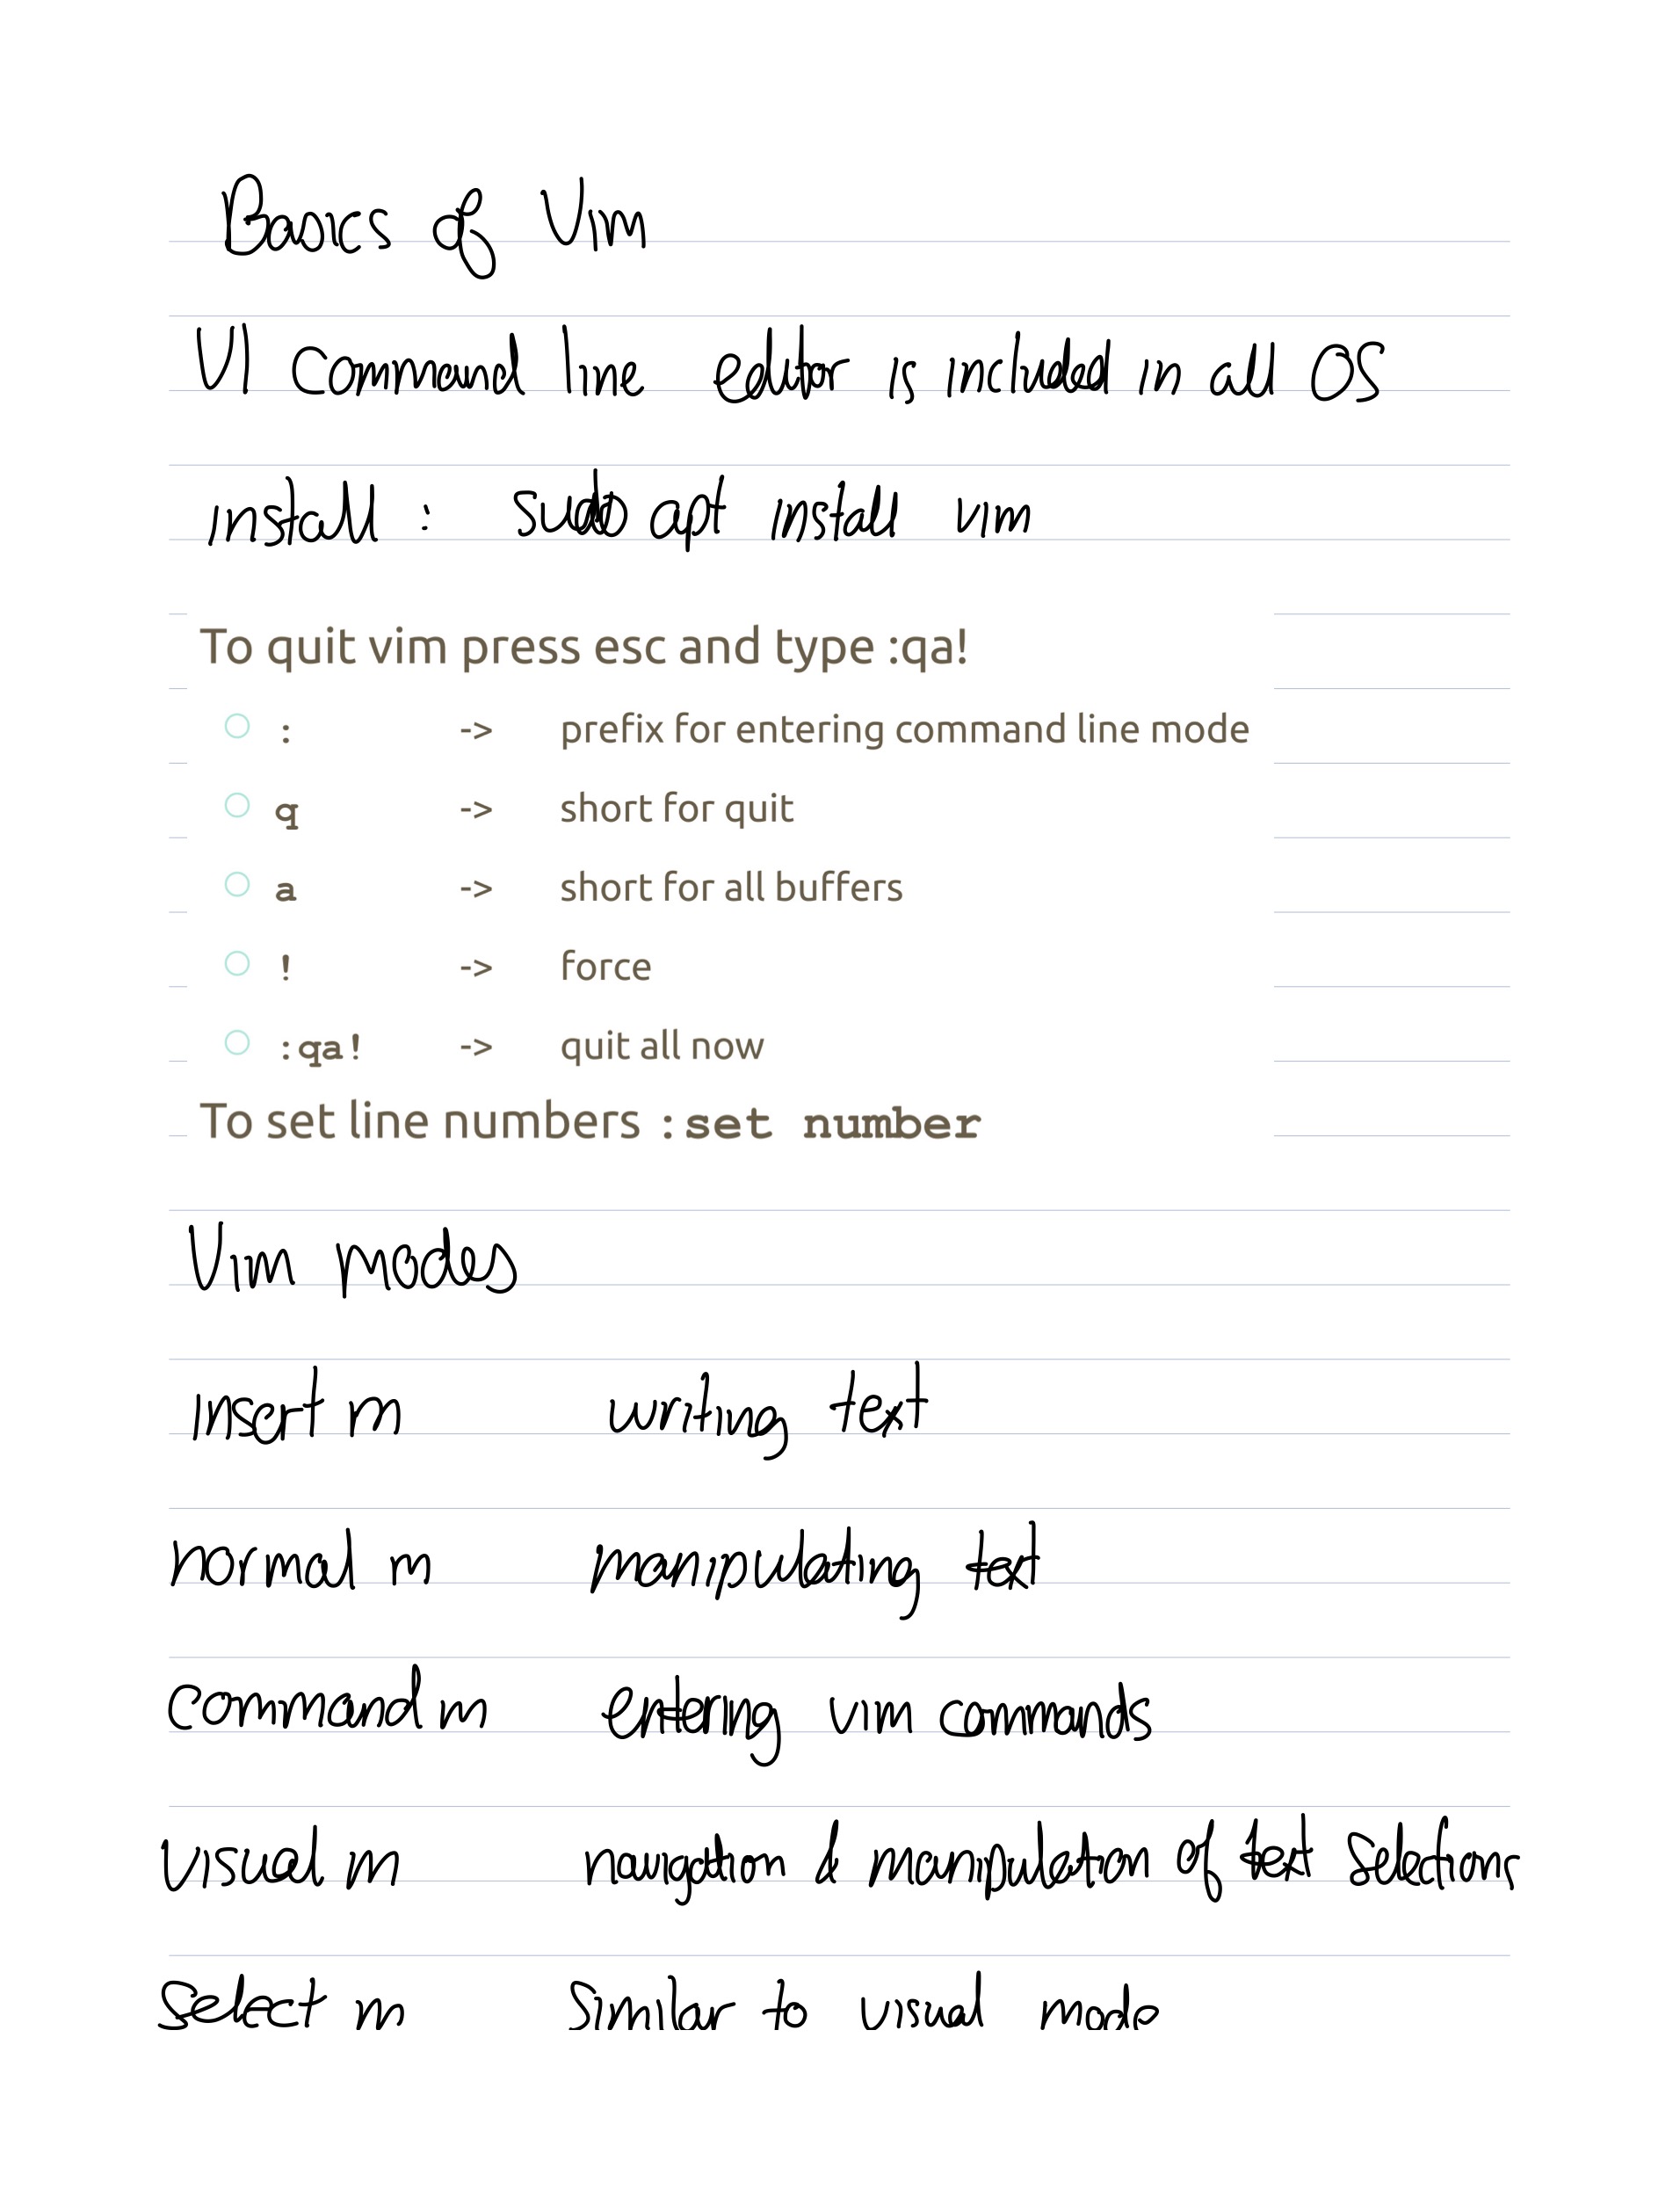 Basics of Vim
VI command line editor is included in all OS
install : sudo apt install vim
To quit vim press esc and type :qa!
: -> prefix for entering command line mode
q -> short for quit
a -> short for all buffers
! -> force
:qa! -> quit all now
To set line numbers :set number
Vim modes
insert m writing text
normal m manipulating text
command m entering vim commands
visual m navigation & manipulation of text selections
select m similar to visual mode